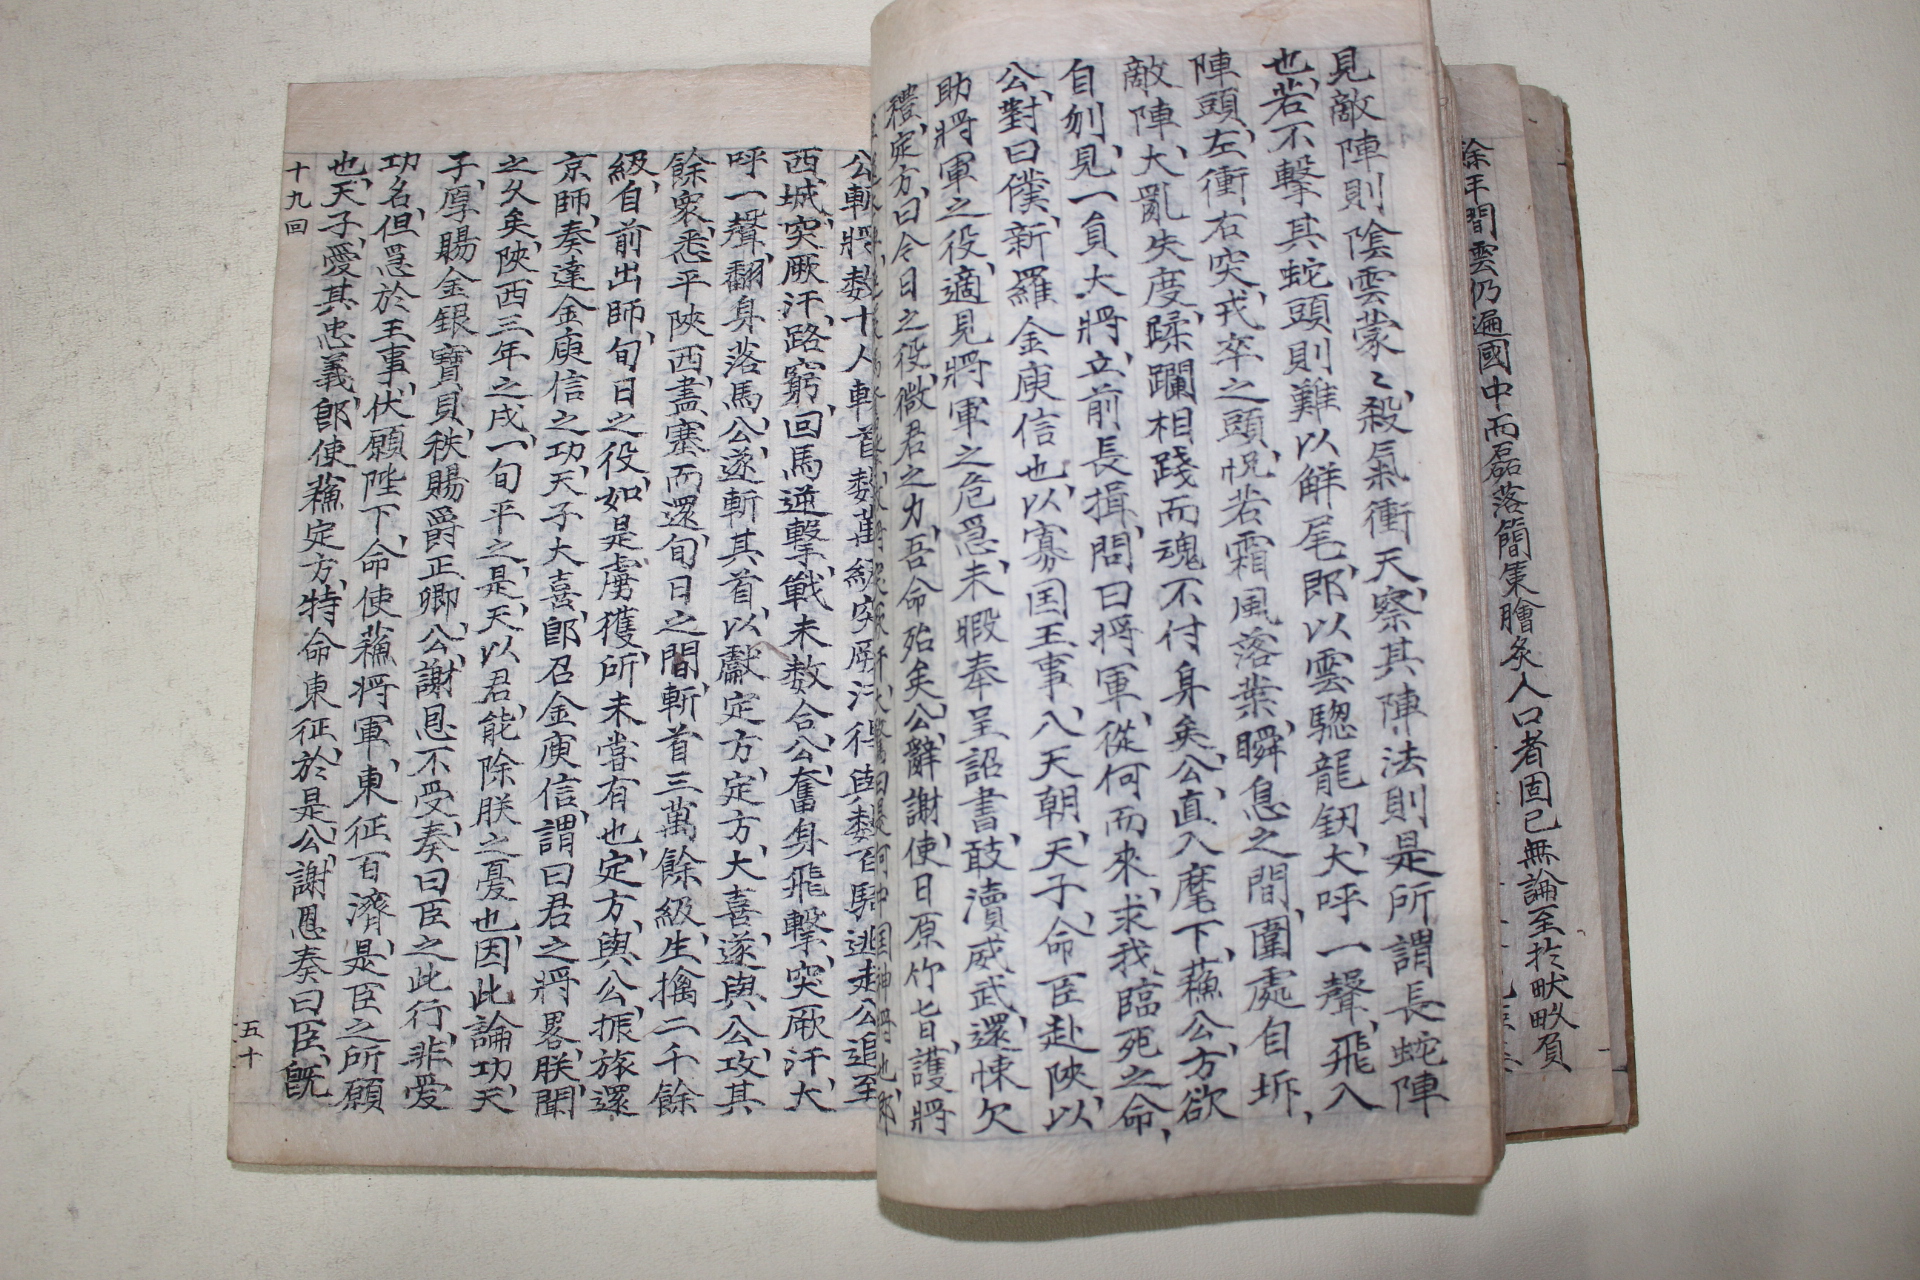 餘年間雲仍遍國中而磊落簡集膾炙人口者固已無論至於畎畝
見敵陣則陰雲蒙〻殺氣衝天察其陣法則是所謂長蛇陣
也若不擊其蛇頭則難以解尾郎以雲騘龍釰大呼一聲飛入
陣頭左衝右突戎卒之頭怳若霜風落葉瞬息之間圍處自坼
敵陣大亂失度蹂躪相踐而魂不付身矣公直入麾下蘓公方欲
自刎見一負大將立前長揖問曰將軍從何而來求我臨死之命
公對曰僕新羅金庾信也以寡国王事八天朝天子命臣赴陝以
助將軍之役適見將軍之危急未暇奉呈詔書敢瀆威武還悚欠
禮定方曰今日之役微君之力吾命殆矣公辭謝使日原竹旨護將
公斬將數十人斬首數萬級突厥汗得與數百騎逃走公追至
西城突厥汗路窮回馬逆擊戰未数合公奮身飛擊突厥汗大
呼一聲翻身落馬公遂斬其首以獻定方定方大喜遂與公攻其
餘衆悉平陝西盡塞而還旬日之間斬首三萬餘級生擒二千餘
級自前出師旬日之役如是虜獲所未嘗有也定方與公振旅還
京師奏達金庾信之功天子大喜卽召金庾信謂曰君之將畧朕聞
之久矣陝西三年之戍一旬平之是天以君能除朕之憂也因此論功天
子厚賜金銀寶貝秩賜爵正卿公謝恩不受奏曰臣之此行非爱
功名但急於王事伏願陛下命使蘓將軍東征百濟是臣之所願
也天子愛其忠義卽使蘓定方特命東征於是公謝恩奏曰臣旣
十九回
五十